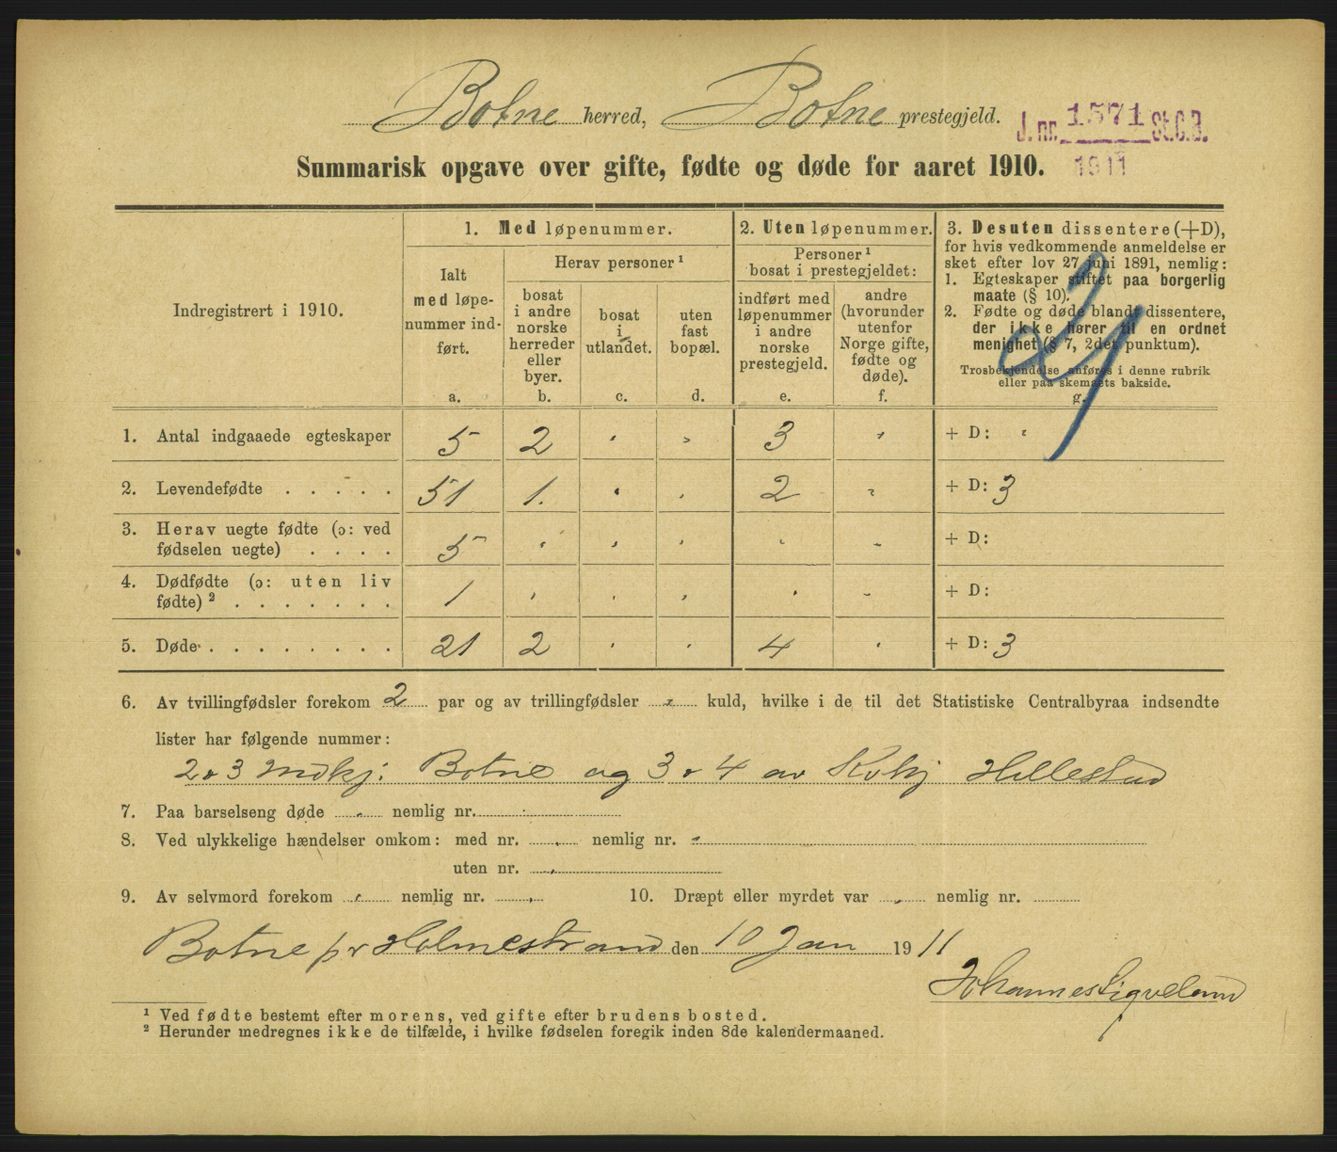 Botne herred, Botne prestegjeld.
J. nr. 1571 St.C.B.
1911
Summarisk opgave over gifte, fødte og døde for aaret 1910.
Indregistrert i 1910.
1. Med løpenummer.
Ialt med løpenummer indført.
a.
Herav personer ¹
bosat i andre norske herreder eller byer.
b.
bosat i utlandet.
c.
uten fast bopæl.
d.
2. Uten løpenummer.
Personer ¹ bosat i prestegjeldet:
indført med løpenummer i andre norske prestegjeld.
e.
andre (hvorunder utenfor Norge gifte, fødte og døde).
f.
3. Desuten dissentere (+D),
for hvis vedkommende anmeldelse er
sket efter lov 27 juni 1891, nemlig:
1. Egteskaper stiftet paa borgerlig
maate (§ 10).
2. Fødte og døde blandt dissentere,
der ikke hører til en ordnet
menighet (§ 7, 2det punktum).
Trosbekjendelse anføres i denne rubrik
eller paa skemaets bakside.
g.
1. Antal indgaaede egteskaper 5 2 " " 3 " + D: "
2. Levendefødte . . . . . 51 1. " " 2 " + D: 3
3. Herav uegte fødte (ɔ: ved
fødselen uegte) . . . . 5 " " " " " + D:
4. Dødfødte (ɔ: uten liv
fødte) ² . . . . . . . 1 " " " " " + D:
5. Døde . . . . . . . . 21 2 " " 4 " + D: 3
6. Av tvillingfødsler forekom 2 par og av trillingfødsler " kuld, hvilke i de til det Statistiske Centralbyraa indsendte
lister har følgende nummer:
2 & 3 Indkj: Botne og 3 & 4 av Kvkj Hillestad
7. Paa barselseng døde " nemlig nr.
8. Ved ulykkelige hændelser omkom: med nr. " nemlig nr. "
uten nr. "
9. Av selvmord forekom " nemlig nr. " 10. Dræpt eller myrdet var " nemlig nr.
Botne pr Holmestrand den 10 Jan 1911
Johannes Sigveland
¹ Ved fødte bestemt efter morens, ved gifte efter brudens bosted.
² Herunder medregnes ikke de tilfælde, i hvilke fødselen foregik inden 8de kalendermaaned.